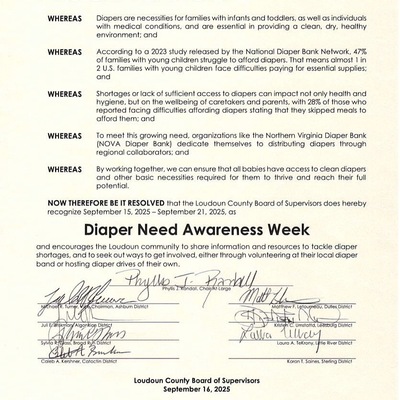 WHEREAS Diapers are necessities for families with infants and toddlers, as well as individuals
with medical conditions, and are essential in providing a clean, dry, healthy
environment; and
WHEREAS According to a 2023 study released by the National Diaper Bank Network, 47%
of families with young children struggle to afford diapers. That means almost 1 in
2 U.S. families with young children face difficulties paying for essential supplies;
and
WHEREAS Shortages or lack of sufficient access to diapers can impact not only health and
hygiene, but on the wellbeing of caretakers and parents, with 28% of those who
reported facing difficulties affording diapers stating that they skipped meals to
afford them; and
WHEREAS To meet this growing need, organizations like the Northern Virginia Diaper Bank
(NOVA Diaper Bank) dedicate themselves to distributing diapers through
regional collaborators; and
WHEREAS By working together, we can ensure that all babies have access to clean diapers
and other basic necessities required for them to thrive and reach their full
potential.
NOW THEREFORE BE IT RESOLVED that the Loudoun County Board of Supervisors does hereby
recognize September 15, 2025 – September 21, 2025, as
Diaper Need Awareness Week
and encourages the Loudoun community to share information and resources to tackle diaper
shortages, and to seek out ways to get involved, either through volunteering at their local diaper
band or hosting diaper drives of their own.
Phyllis J. Randall
Phyllis J. Randall, Chair At Large
Michael R. Turner, Vice Chairman, Ashburn District
Matthew F. Letourneau, Dulles District
Juli E. Briskman, Algonkian District
Kristen C. Umstattd, Leesburg District
Sylvia R. Glass, Broad Run District
Laura A. TeKrony, Little River District
Caleb A. Kershner, Catoctin District
Karon T. Saines, Sterling District
Loudoun County Board of Supervisors
September 16, 2025